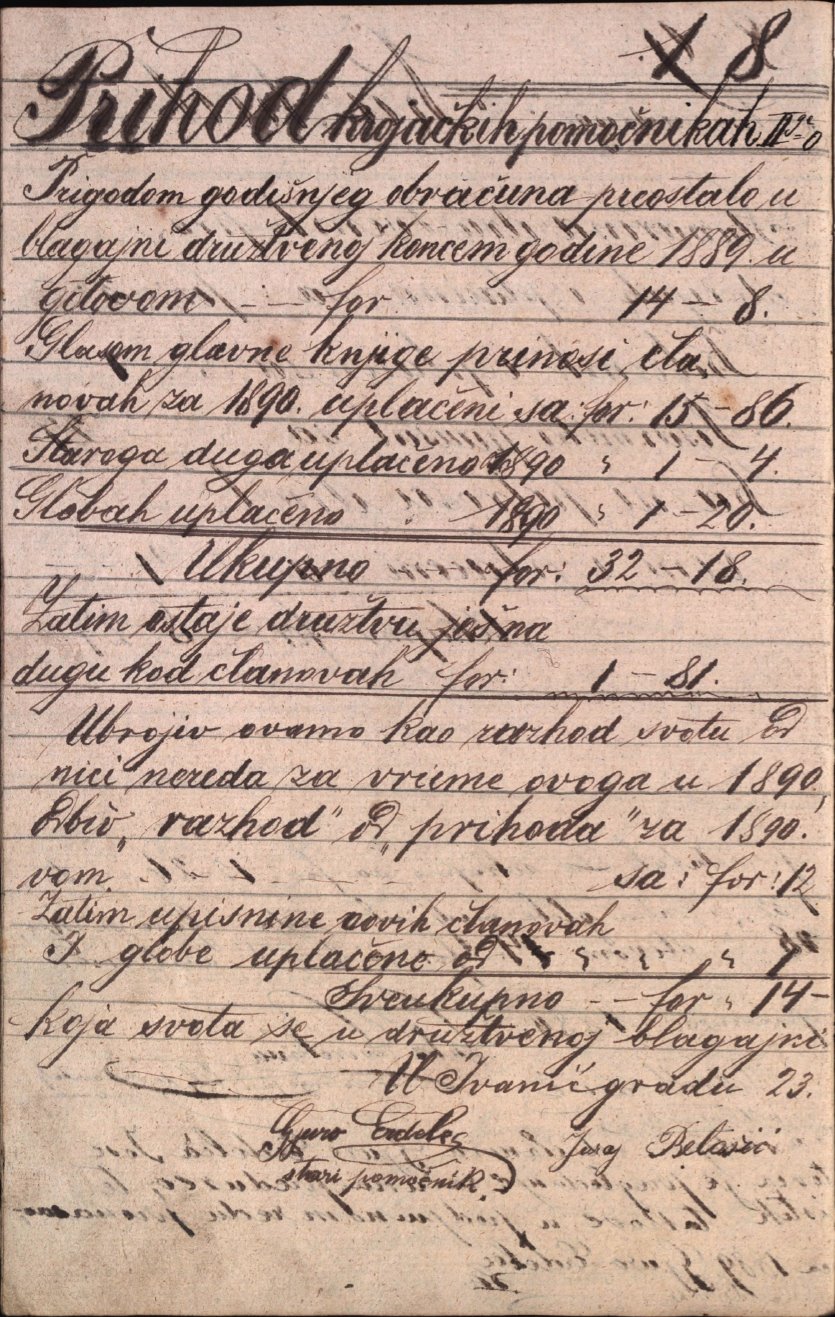 8
Prihod krgačkih pomočnikah
Prigodom godišnjeg obračuna preostalo u
blagajni družtvenoj koncem godine 1889. u
gotovom — for 14 – 8.
Glasom glavne knjige prinosi čla-
novah za 1890. uplačeni sa: for: 15 – 86.
Staroga duga uplačeno 1890 " 1 – 4.
Globah uplačeno 1890 " 1 – 20.
Ukupno for: 32 – 18.
Zatim ostaje družtvu još na
dugu kod članovah for: 1 – 81.
Ubrojiv ovamo kao razhod svotu od
nici nereda za vrieme ovoga u 1890,
Odbiv „razhod" od „prihoda" za 1890.
vom. sa: for: 12
Zatim upisnine novih članovah
I globe uplačene od " " " 1
Sveukupno -- for " 14 –
koja svota se u družtvenoj blagajni
U Ivanić gradu 23.
Gjuro Erdelec Juraj
stari pomočnik.